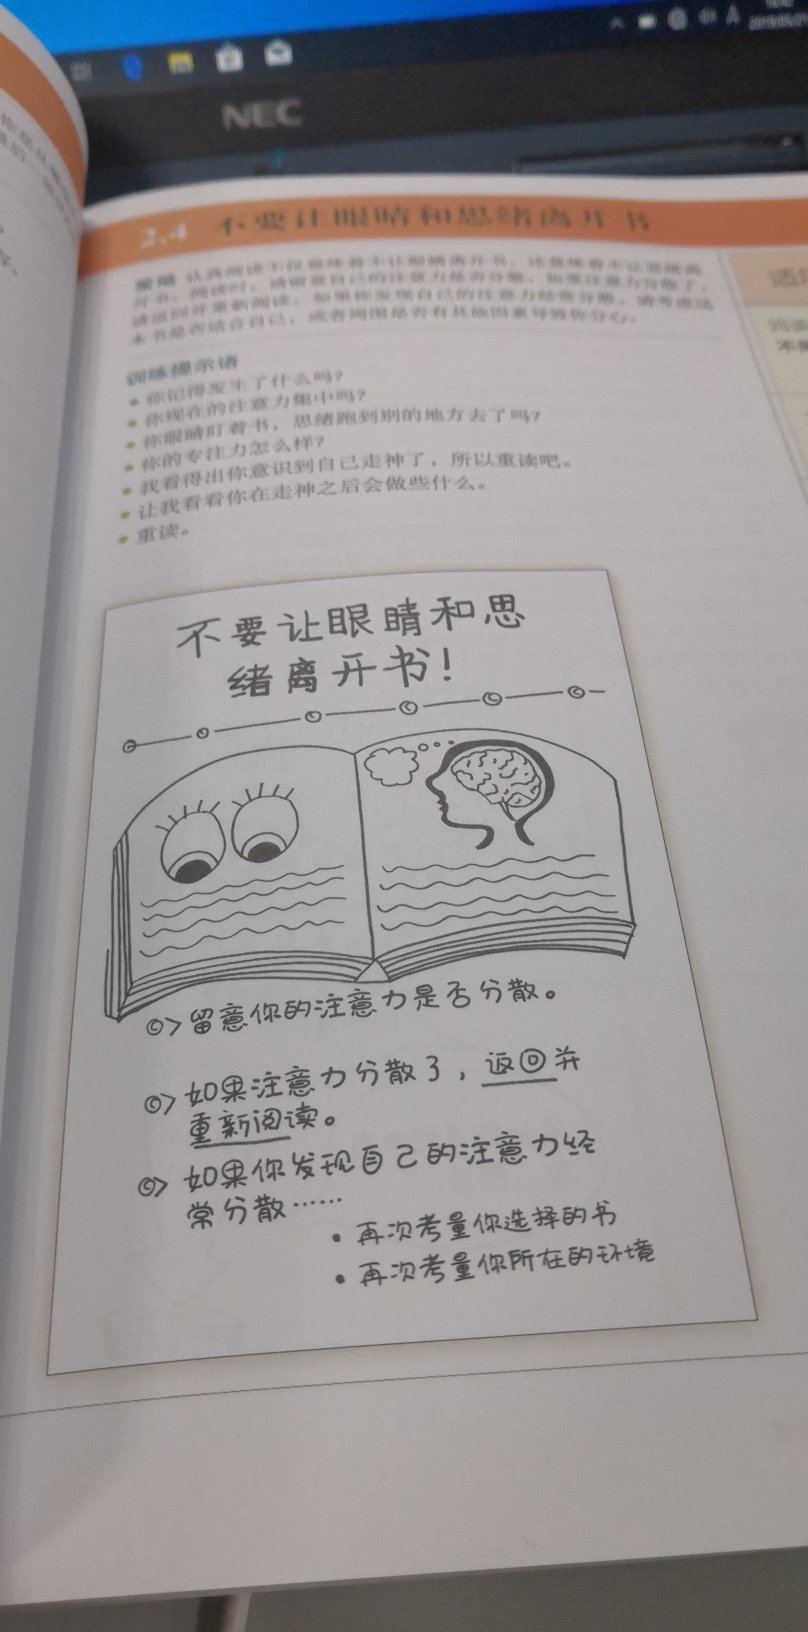 NEC
2.4 不要让眼睛和思绪离开书
策略 认真阅读不仅意味着不让眼睛离开书，还意味着不让思绪离
开书。阅读时，请留意自己的注意力是否分散。如果注意力分散了，
请返回并重新阅读。如果你发现自己的注意力经常分散，请考虑这
本书是否适合自己，或者周围是否有其他因素导致你分心。
训练提示语
• 你记得发生了什么吗？
• 你现在的注意力集中吗？
• 你眼睛盯着书，思绪跑到别的地方去了吗？
• 你的专注力怎么样？
• 我看得出你意识到自己走神了，所以重读吧。
• 让我看看你在走神之后会做些什么。
• 重读。
不要让眼睛和思
绪离开书！
留意你的注意力是否分散。
如果注意力分散了，返回并
重新阅读。
如果你发现自己的注意力经
常分散……
• 再次考量你选择的书
• 再次考量你所在的环境